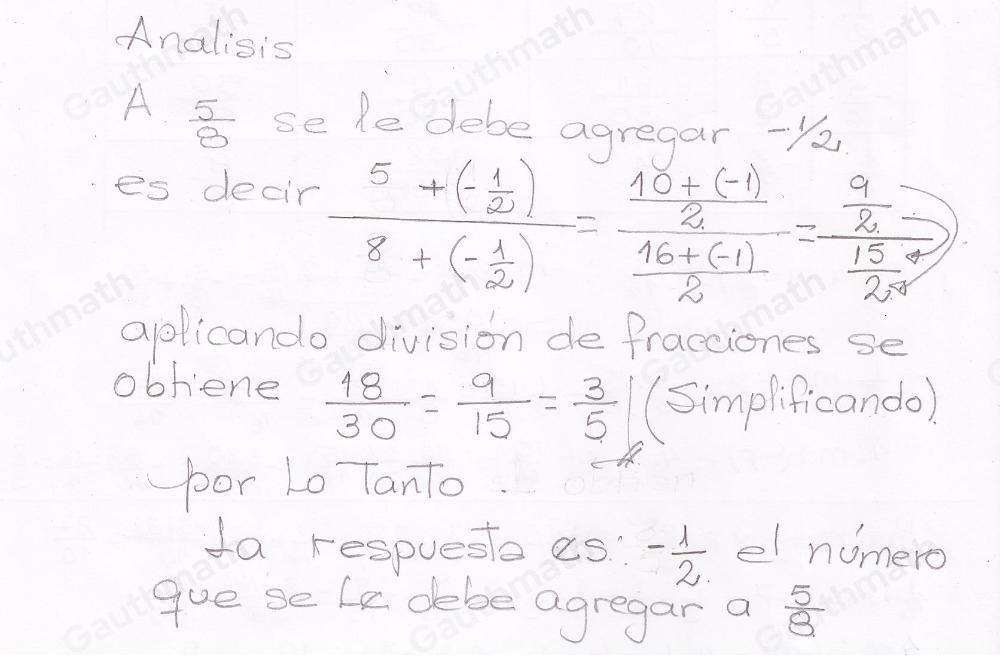 Analisis
A 5/8 se le debe agregar -1/2
es decir (5 + (-1/2)) / (8 + (-1/2)) = ((10 + (-1))/2) / ((16 + (-1))/2) = (9/2) / (15/2)
aplicando división de fracciones se
obtiene 18/30 = 9/15 = 3/5 (Simplificando)
por Lo Tanto
La respuesta es: -1/2 el número
que se Le debe agregar a 5/8
Gauthmath